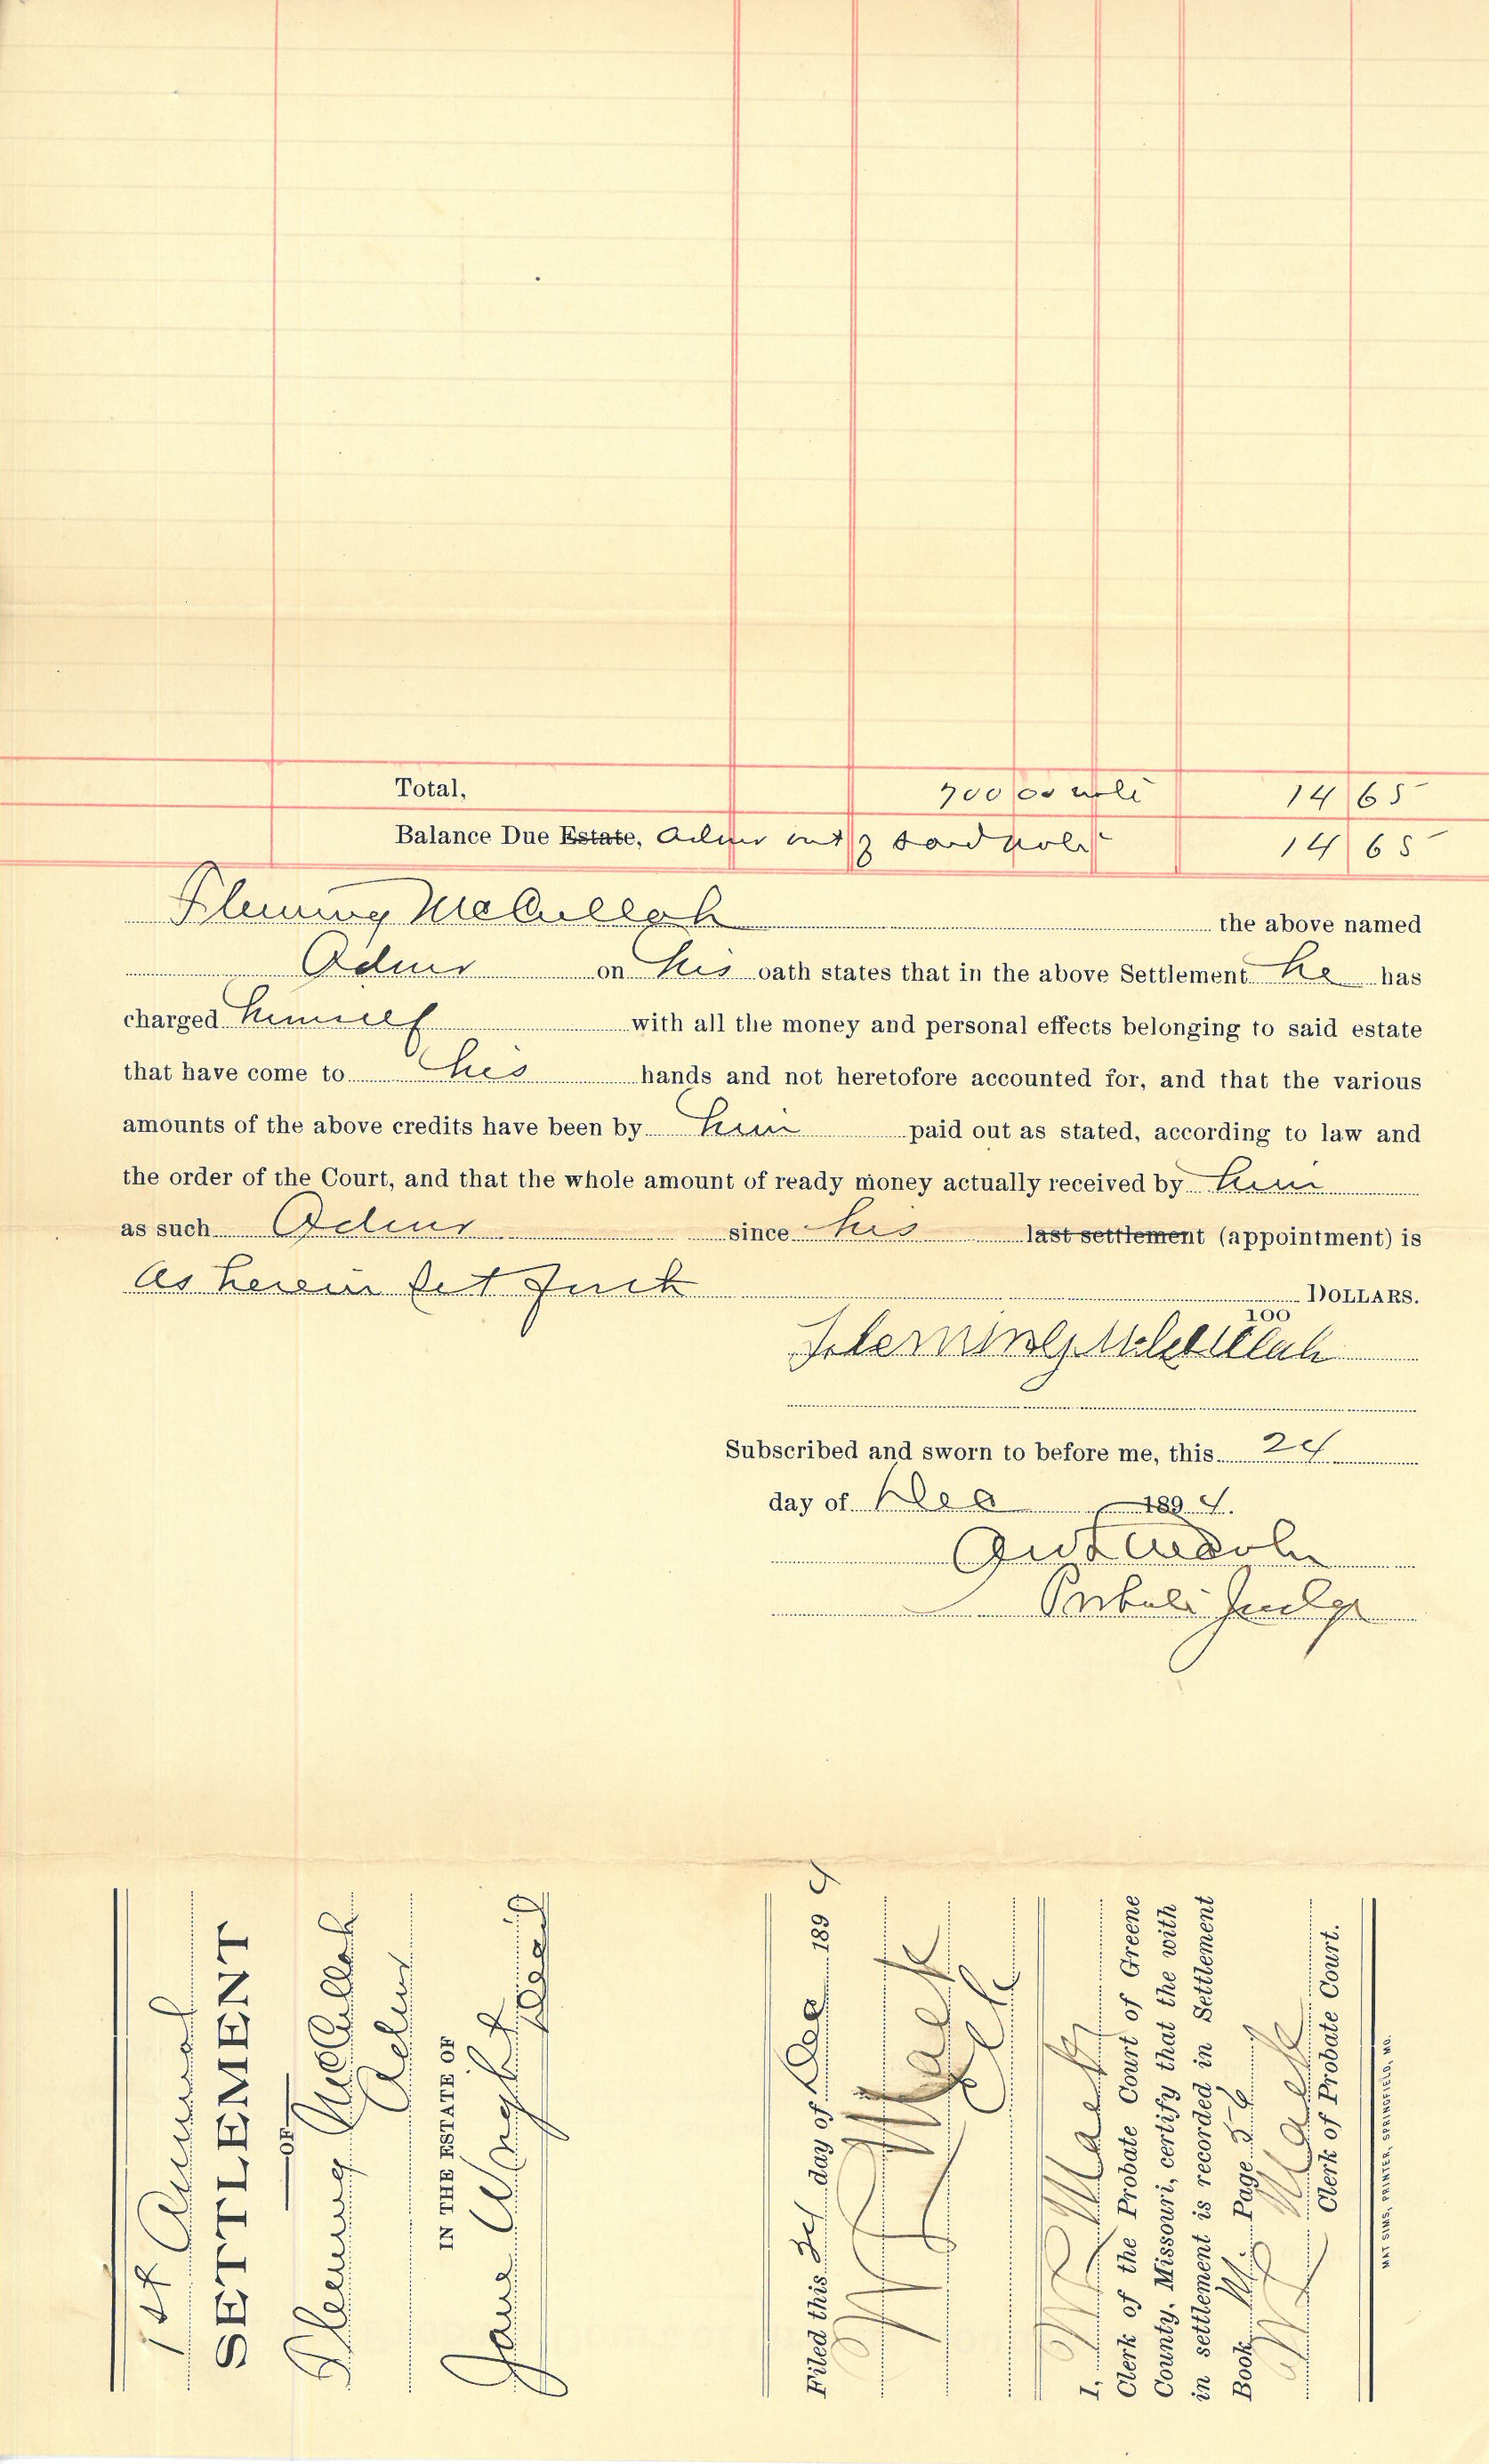 Total, 700 00 note 14 65
Balance Due Estate, Admr out of said note 14 65
Fleming McCullah the above named
Admr on his oath states that in the above Settlement he has
charged himself with all the money and personal effects belonging to said estate
that have come to his hands and not heretofore accounted for, and that the various
amounts of the above credits have been by him paid out as stated, according to law and
the order of the Court, and that the whole amount of ready money actually received by him
as such Admr since his last settlement (appointment) is
as herein set forth DOLLARS.
100
Fleming McCullah
Subscribed and sworn to before me, this 24
day of Dec 1894.
Probate Judge
1st Annual
SETTLEMENT
OF
Fleming McCullah
Admr
IN THE ESTATE OF
Jane Wright
Decd
Filed this 24 day of Dec 1894
Mack
Clk
I, Mack
Clerk of the Probate Court of Greene
County, Missouri, certify that the with
in settlement is recorded in Settlement
Book M. Page 356
Mack
Clerk of Probate Court.
MAT SIMS, PRINTER, SPRINGFIELD, MO.